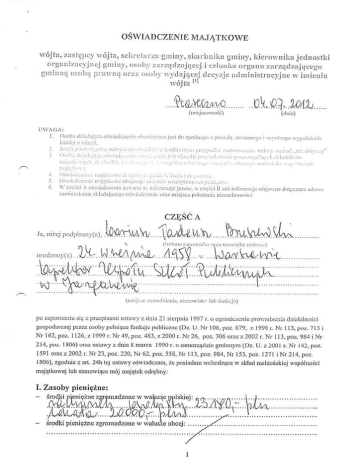 OŚWIADCZENIE MAJĄTKOWE
wójta, zastępcy wójta, sekretarza gminy, skarbnika gminy, kierownika jednostki
organizacyjnej gminy, osoby zarządzającej i członka organu zarządzającego
gminną osobą prawną oraz osoby wydającej decyzje administracyjne w imieniu
wójta [1]
Piaseczno 04.07.2012
(miejscowość) (dnia)
UWAGA:
1. Osoba składająca oświadczenie obowiązana jest do zgodnego z prawdą, starannego i zupełnego wypełnienia
każdej z rubryk.
2. Jeżeli poszczególne rubryki nie znajdują w konkretnym przypadku zastosowania, należy wpisać „nie dotyczy".
3. Osoba składająca oświadczenie
4. Oświadczenie majątkowe dotyczy
5. Oświadczenie majątkowe obejmuje również wierzytelności pieniężne.
6. W części A oświadczenia zawarte są informacje jawne, w części B zaś informacje niejawne dotyczące adresu
zamieszkania składającego oświadczenie oraz miejsca położenia nieruchomości.
CZĘŚĆ A
Ja, niżej podpisany(a), Dariusz Tadeusz
(imiona i nazwisko oraz nazwisko rodowe)
urodzony(a) 24 września 1958 w Warszawie
Dyrektor Zespołu Szkół Publicznych
w
(miejsce zatrudnienia, stanowisko lub funkcja)
po zapoznaniu się z przepisami ustawy z dnia 21 sierpnia 1997 r. o ograniczeniu prowadzenia działalności
gospodarczej przez osoby pełniące funkcje publiczne (Dz. U. Nr 106, poz. 679, z 1998 r. Nr 113, poz. 715 i
Nr 162, poz. 1126, z 1999 r. Nr 49, poz. 483, z 2000 r. Nr 26, poz. 306 oraz z 2002 r. Nr 113, poz. 984 i Nr
214, poz. 1806) oraz ustawy z dnia 8 marca 1990 r. o samorządzie gminnym (Dz. U. z 2001 r. Nr 142, poz.
1591 oraz z 2002 r. Nr 23, poz. 220, Nr 62, poz. 558, Nr 113, poz. 984, Nr 153, poz. 1271 i Nr 214, poz.
1806), zgodnie z art. 24h tej ustawy oświadczam, że posiadam wchodzące w skład małżeńskiej wspólności
majątkowej lub stanowiące mój majątek odrębny:
I. Zasoby pieniężne:
– środki pieniężne zgromadzone w walucie polskiej:
23180,- pln
lokata 20000,- pln
– środki pieniężne zgromadzone w walucie obcej:
1